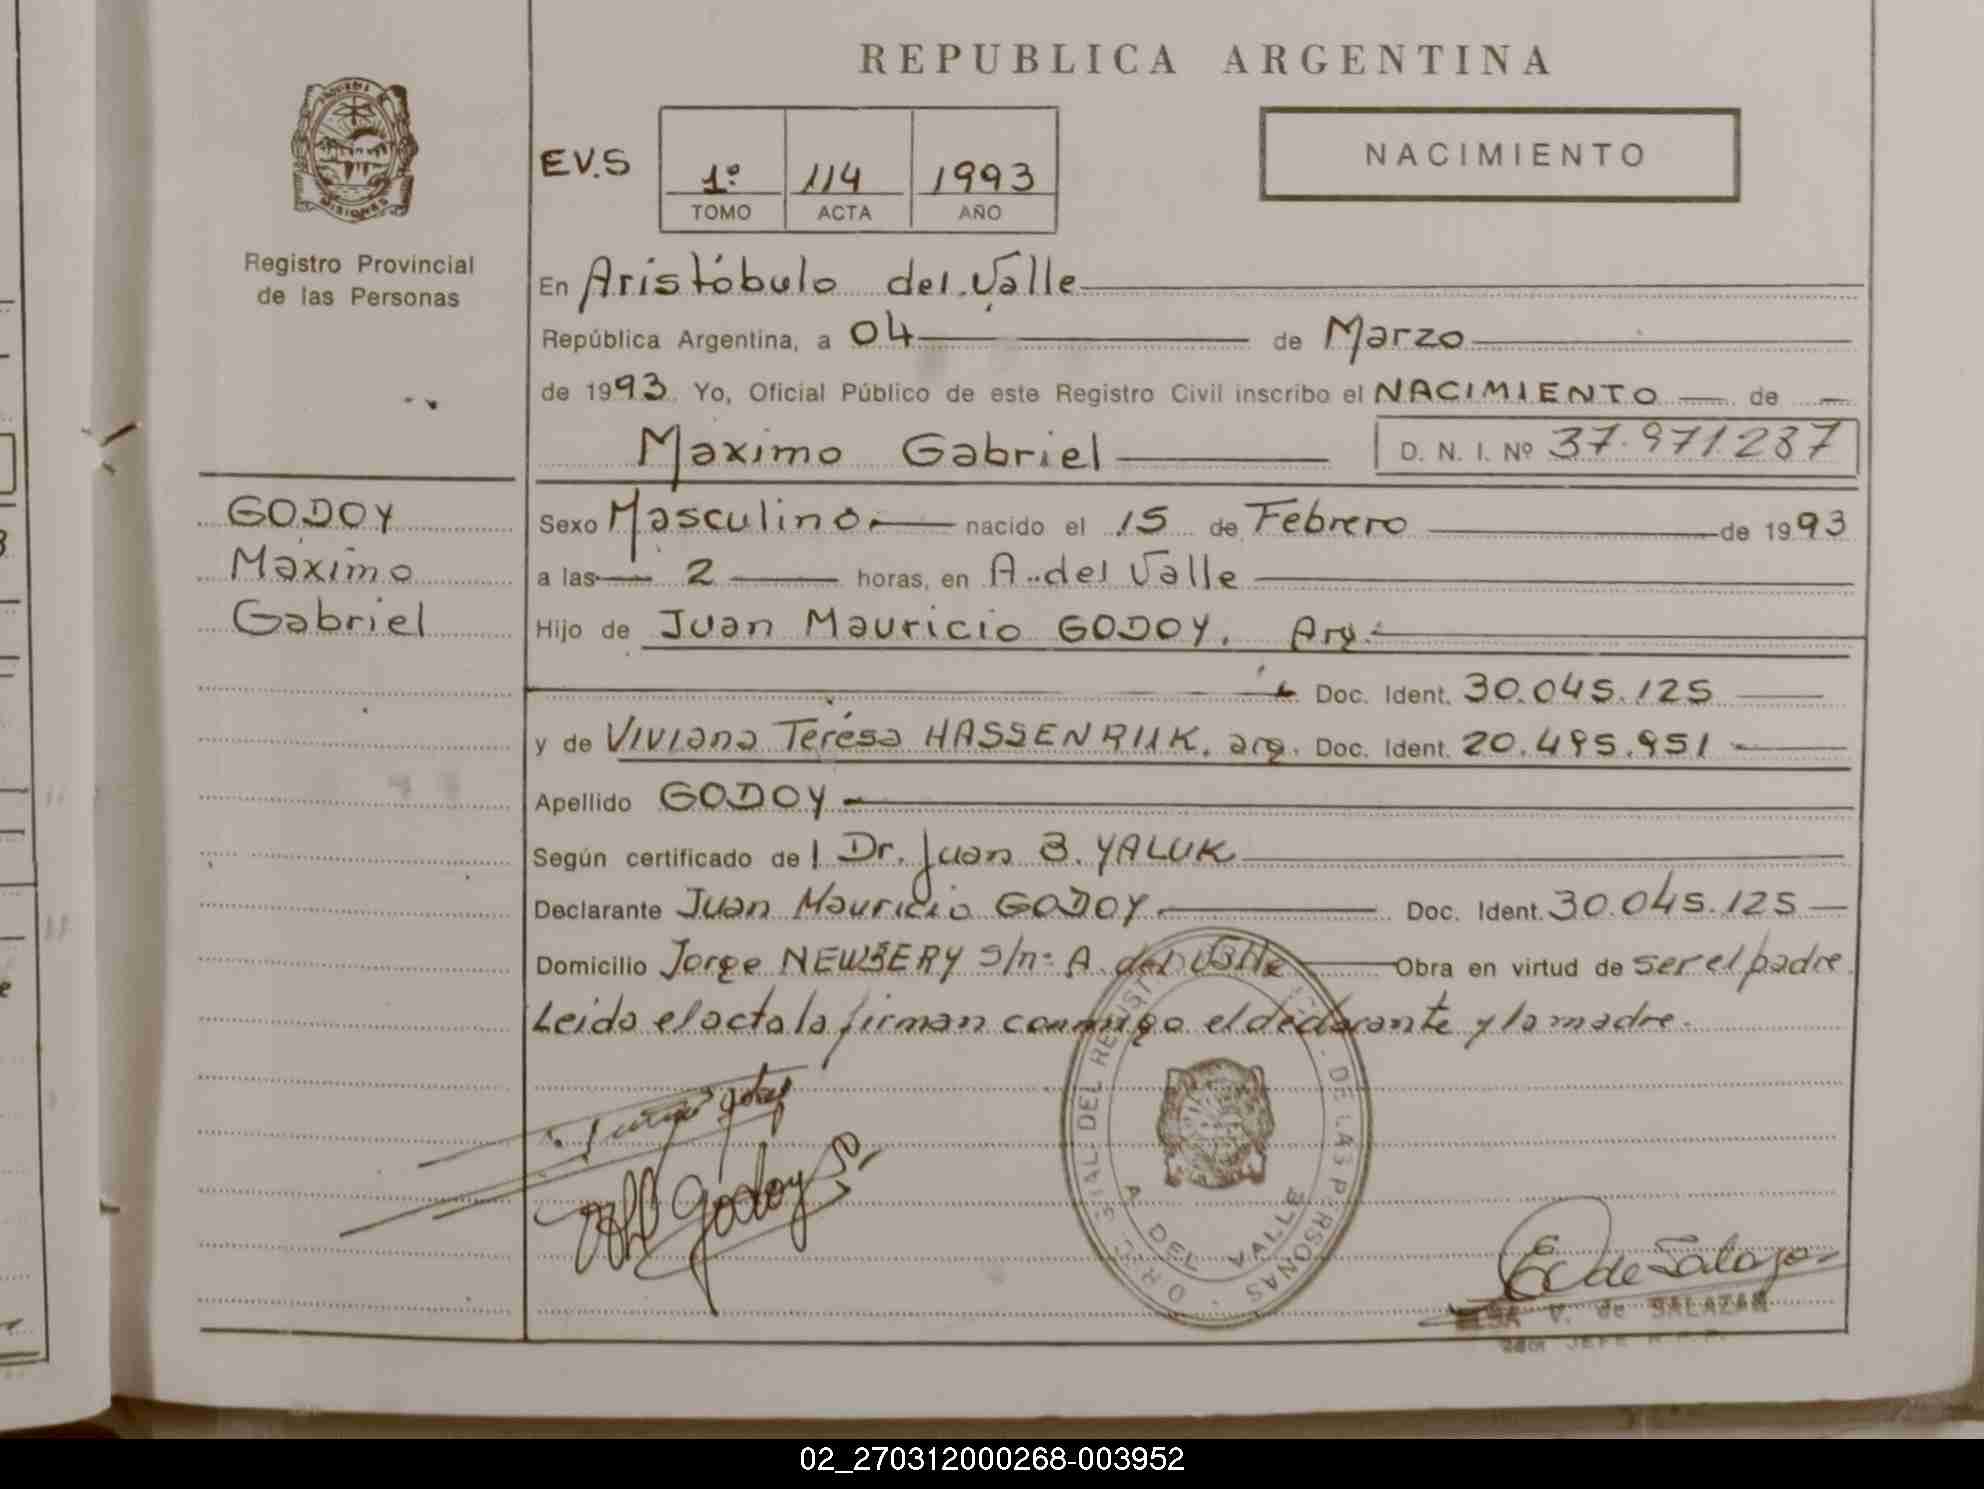 REPUBLICA ARGENTINA
NACIMIENTO
EV.S
1º 114 1993
TOMO ACTA AÑO
MISIONES
Registro Provincial
de las Personas
En Aristóbulo del Valle
República Argentina, a 04 de Marzo
de 1993 Yo, Oficial Público de este Registro Civil inscribo el NACIMIENTO de
Máximo Gabriel D. N. I. Nº 37.971.287
GODOY
Máximo
Gabriel
Sexo Masculino nacido el 15 de Febrero de 1993
a las 2 horas, en A. del Valle
Hijo de Juan Mauricio GODOY. Arg.
Doc. Ident. 30.045.125
y de Viviana Teresa HASSENRIIK. arg. Doc. Ident. 20.495.951
Apellido GODOY
Según certificado de l Dr. Juan B. YALUK
Declarante Juan Mauricio GODOY Doc. Ident. 30.045.125
Domicilio Jorge NEWBERY s/nº A. del Valle Obra en virtud de ser el padre
Leida el acta la firman conmigo el declarante y la madre.
DEL REGISTRO DE LAS PERSONAS
A DEL VALLE
Godoy
E de Salazar
ELSA V. de SALAZAR
JEFE R.P.P.
02_270312000268-003952